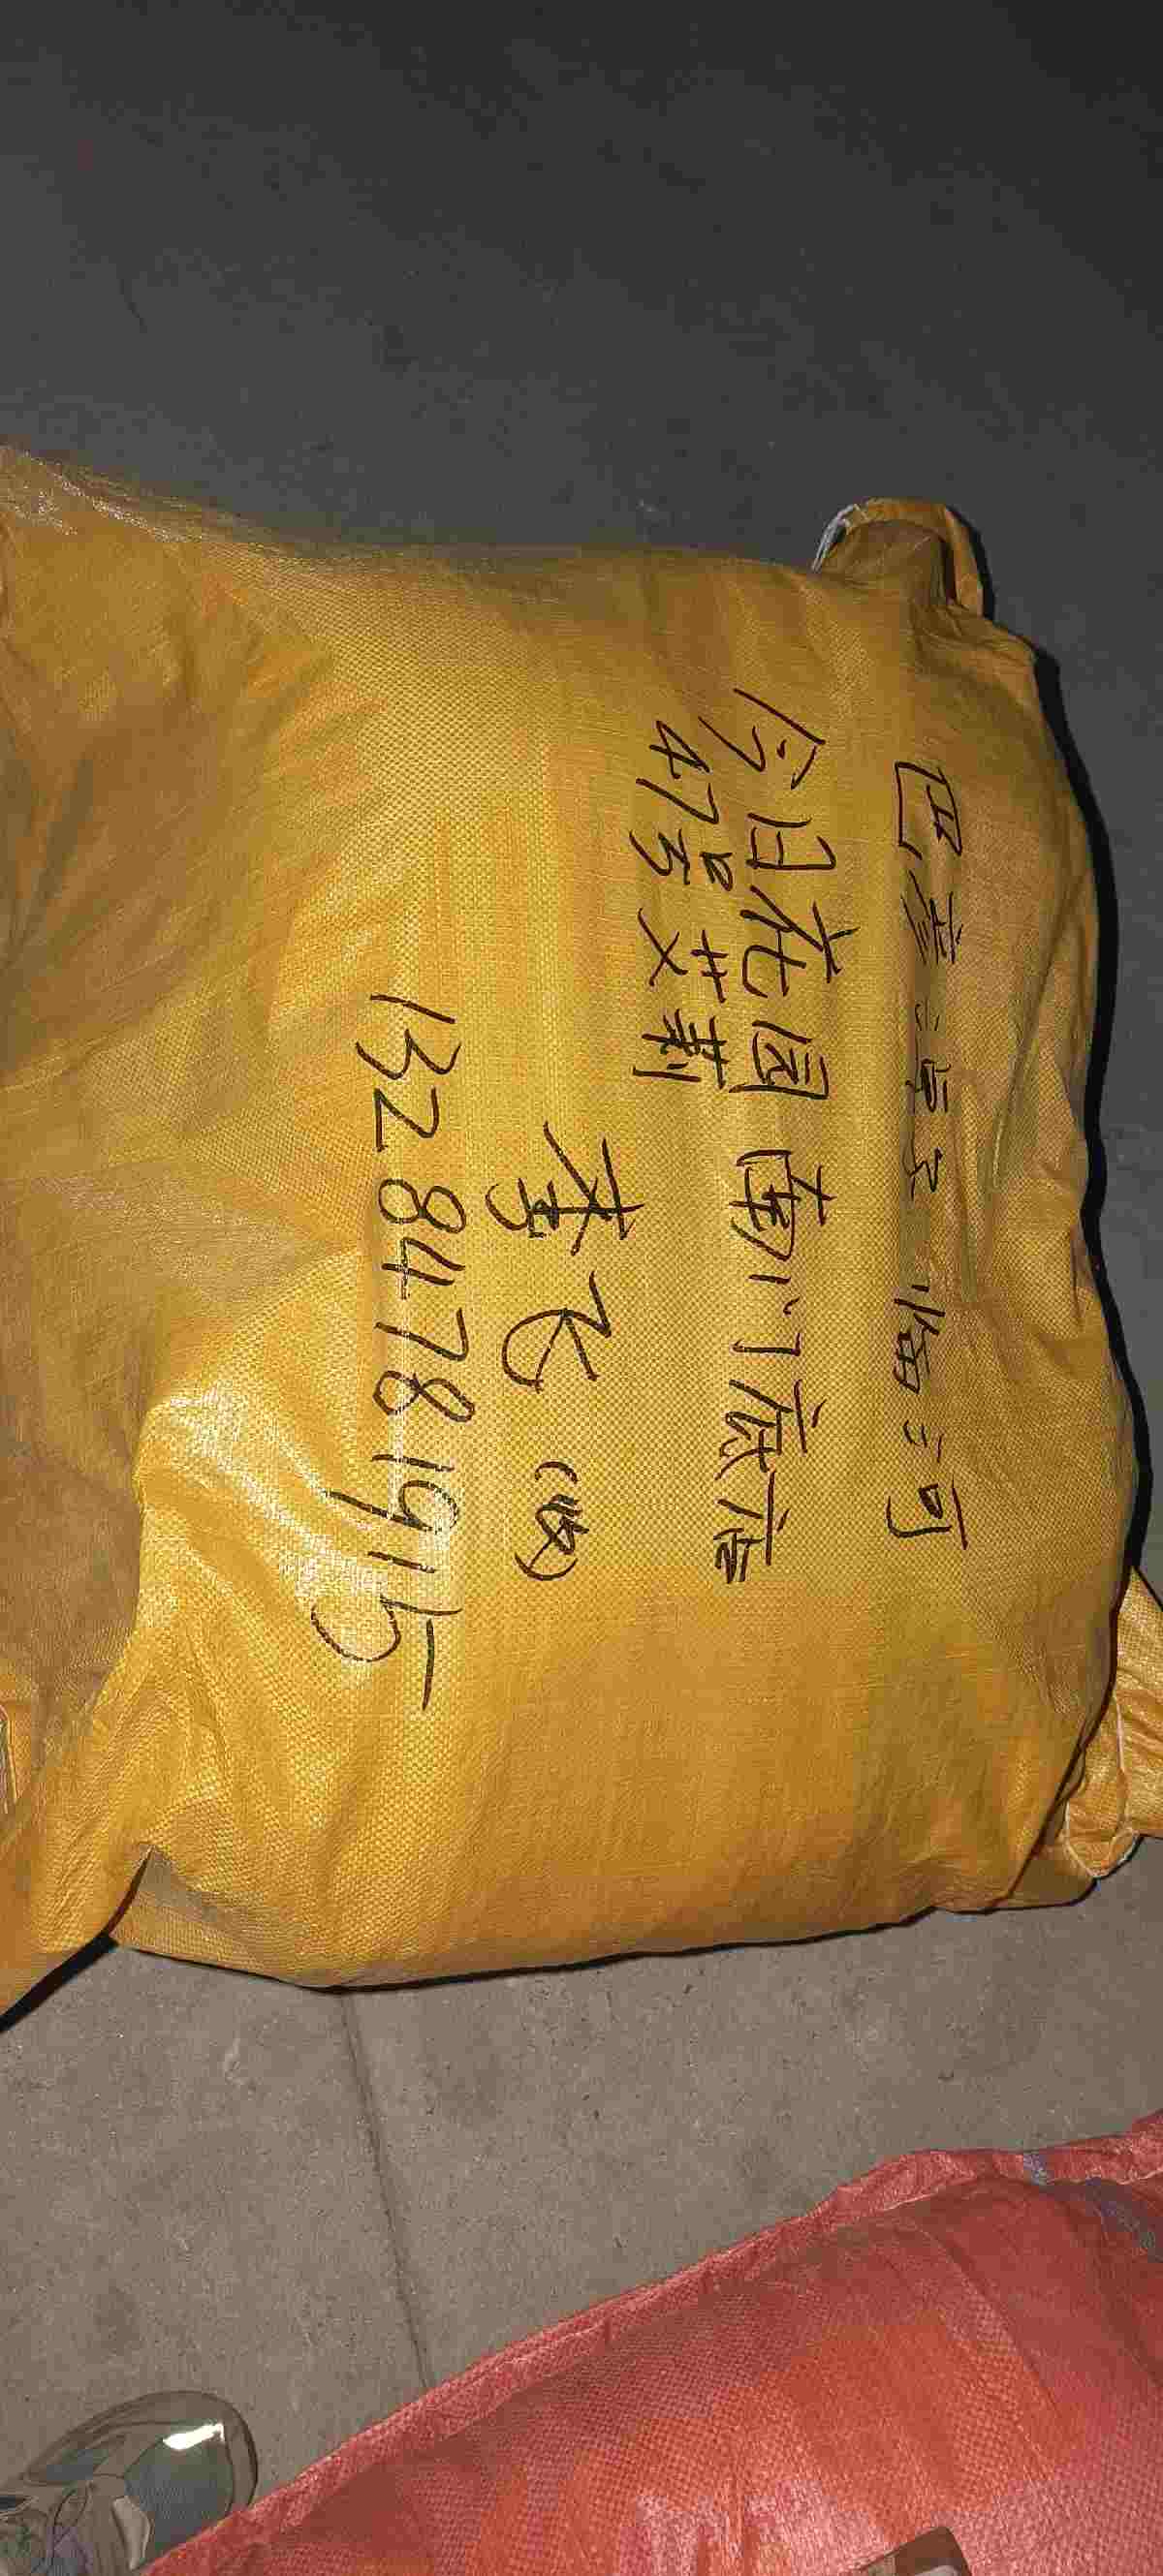 巴彦淖尔 临河
今日花园 南门底店
47号 艾刺
李飞(收)
13284781915